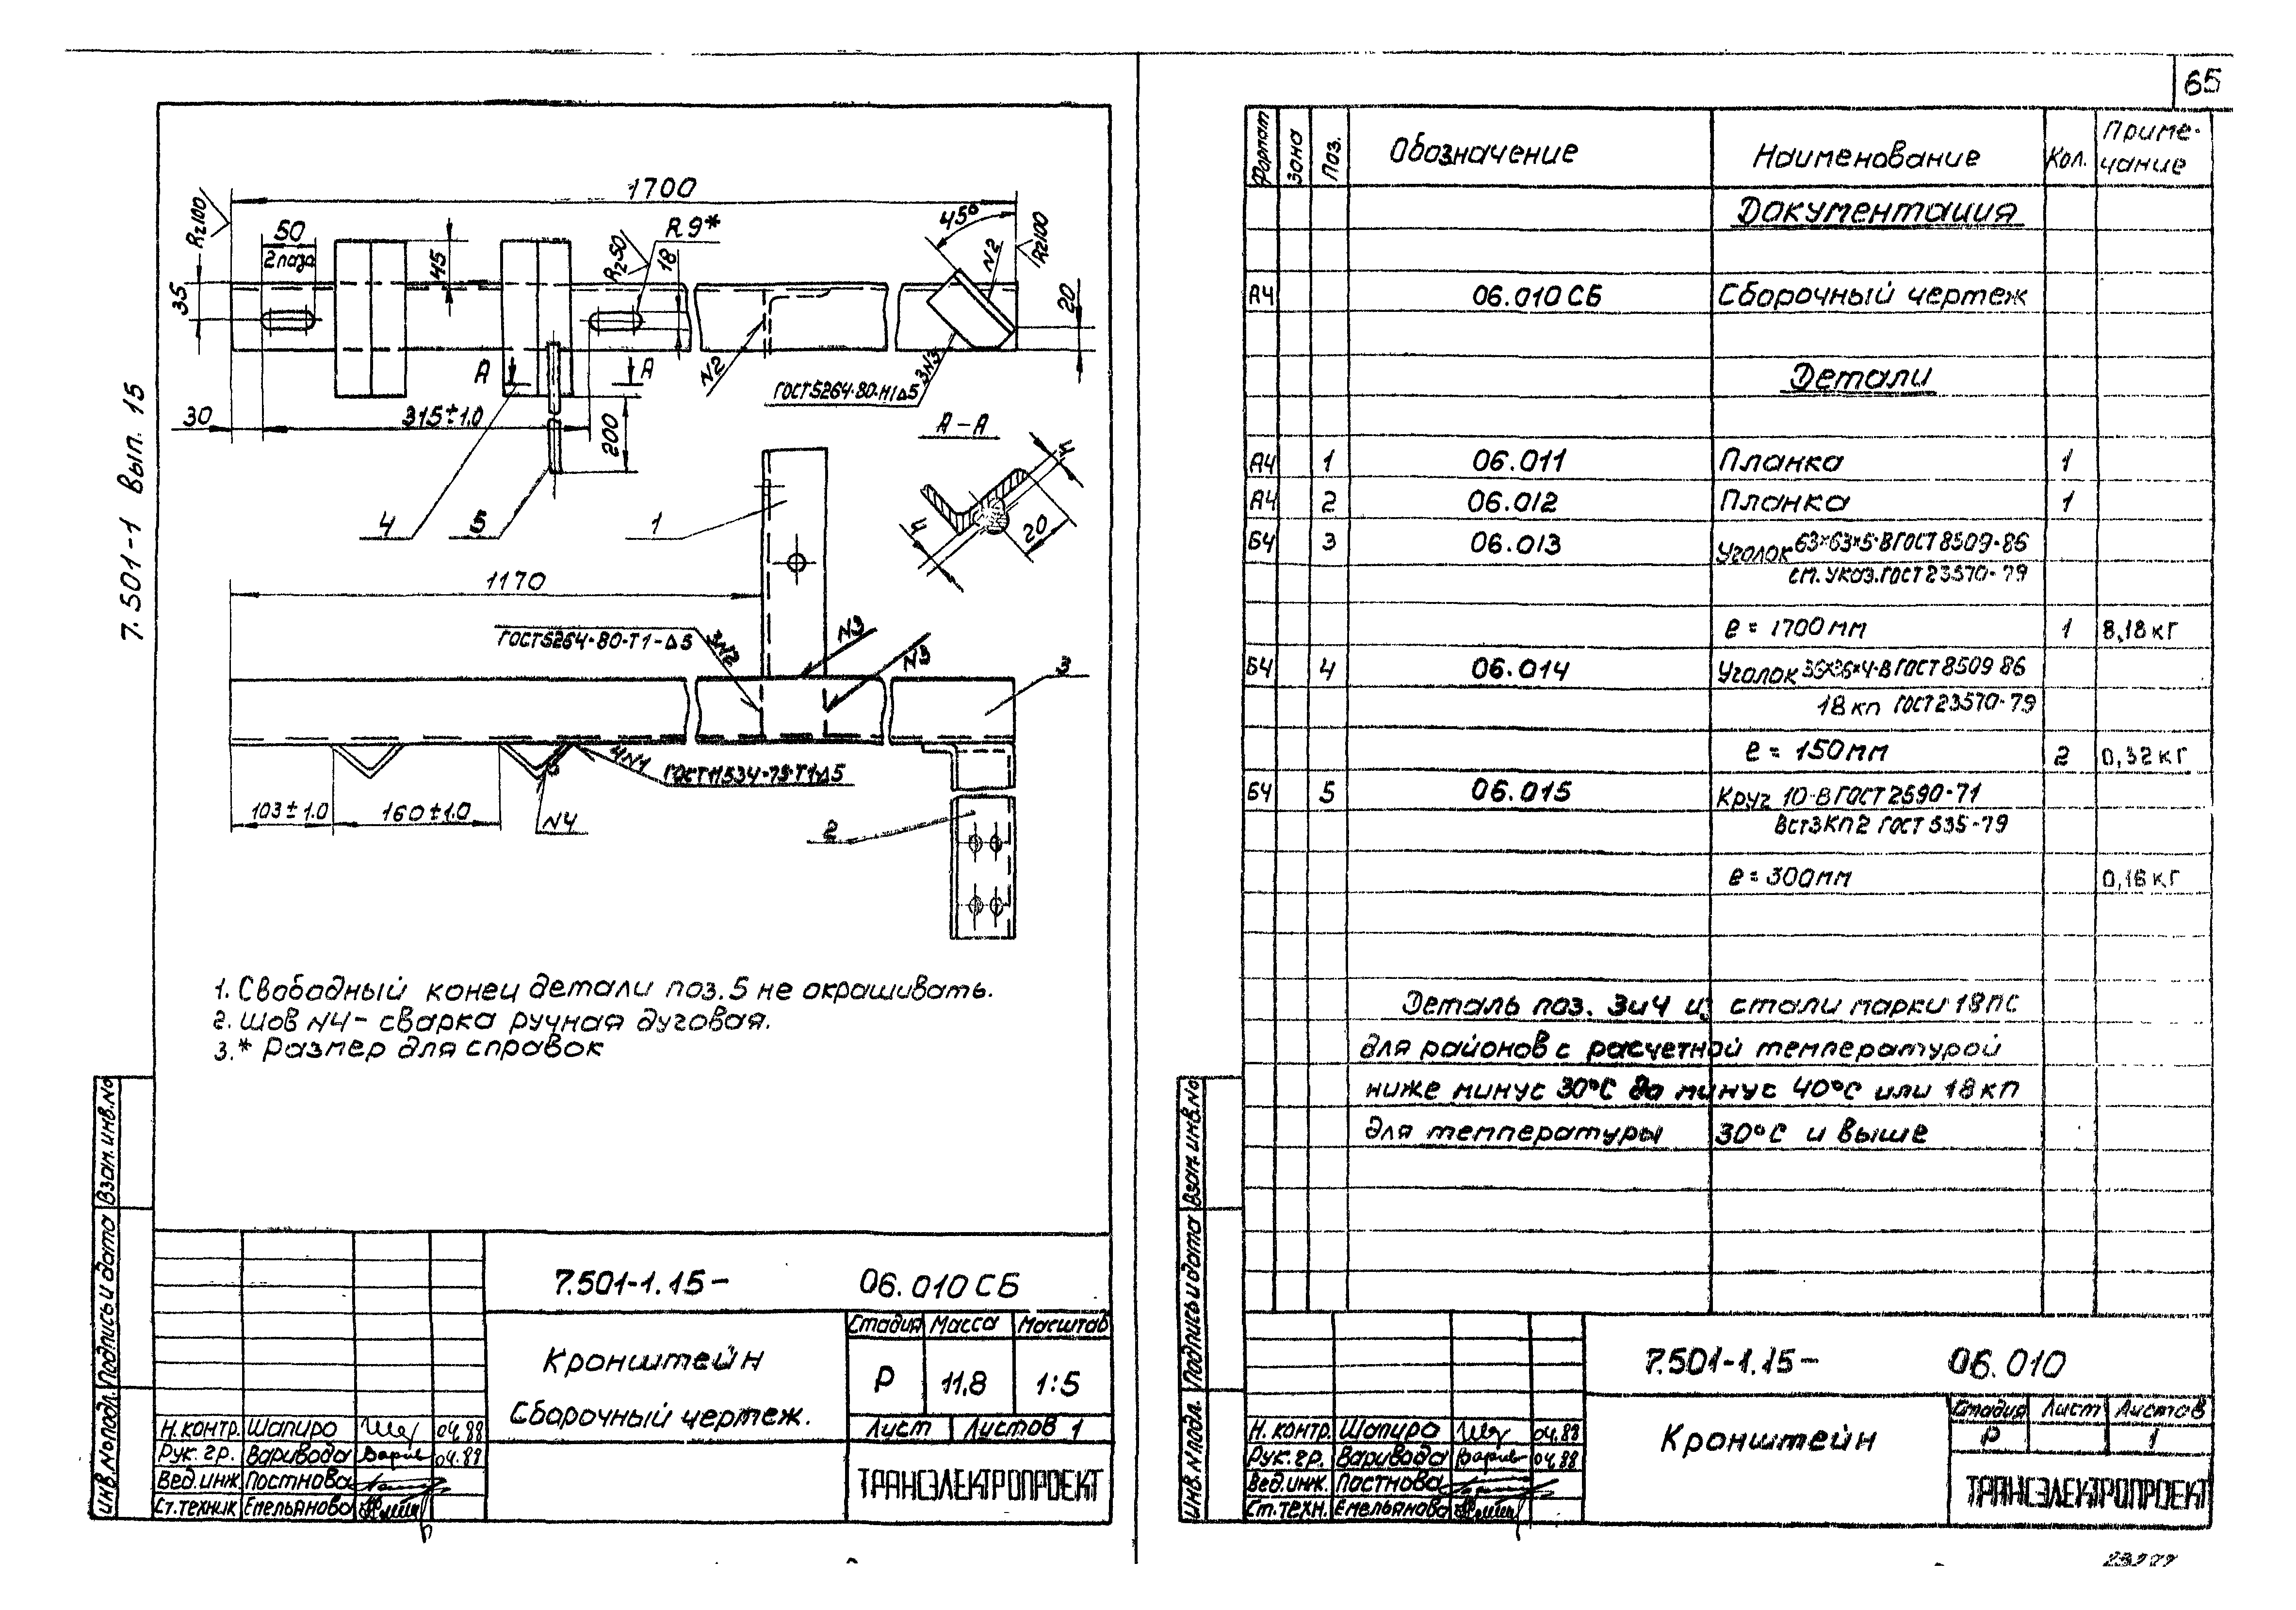 65
7.501-1 Вып. 15
1700
Rz100
50
2 паза
45
R9*
Rz50
18
45°
N2
Rz100
35
20
А
А
N2
3N3
ГОСТ 5264-80-Н1-Δ5
30
315±1.0
200
А-А
4
5
1
h
h
20
1170
ГОСТ 5264-80-Т1-Δ5
3N2
N3
N3
3
4N1
ГОСТ 11534-75-Т1-Δ5
103±1.0
160±1.0
N4
2
1. Свободный конец детали поз.5 не окрашивать.
2. Шов N4- сварка ручная дуговая.
3.* Размер для справок
Инв.№подл. Подпись и дата Взам.инв.№
7.501-1.15- 06.010 СБ
Кронштейн
Сборочный чертеж.
Стадия Масса Масштаб
Р 11,8 1:5
Лист Листов 1
Н.контр. Шапиро 04.88
Рук. гр. Варивода 04.88
Вед.инж. Постнова
Ст.техник Емельянова
ТРАНСЭЛЕКТРОПРОЕКТ
Формат Зона Поз. Обозначение Наименование Кол. Приме-
чание
Документация
А4 06.010 СБ Сборочный чертеж
Детали
А4 1 06.011 Планка 1
А4 2 06.012 Планка 1
Б4 3 06.013 Уголок 63×63×5-В ГОСТ 8509-86
см. указ. ГОСТ 23570-79
е = 1700 мм 1 8,18 кг
Б4 4 06.014 Уголок 36×36×4-В ГОСТ 8509 86
18 кп ГОСТ 23570-79
е = 150 мм 2 0,32 кг
Б4 5 06.015 Круг 10-В ГОСТ 2590-71
ВСт3КП2 ГОСТ 535-79
е = 300 мм 0,16 кг
Деталь поз. 3и4 из стали марки 18 пс
для районов с расчетной температурой
ниже минус 30°С до минус 40°С или 18 кп
для температуры 30°С и выше
Инв.№подл. Подпись и дата Взам.инв.№
7.501-1.15- 06.010
Кронштейн
Стадия Лист Листов
Р 1
Н.контр. Шапиро 04.88
Рук. гр. Варивода 04.88
Вед.инж. Постнова
Ст.техн. Емельянова
ТРАНСЭЛЕКТРОПРОЕКТ